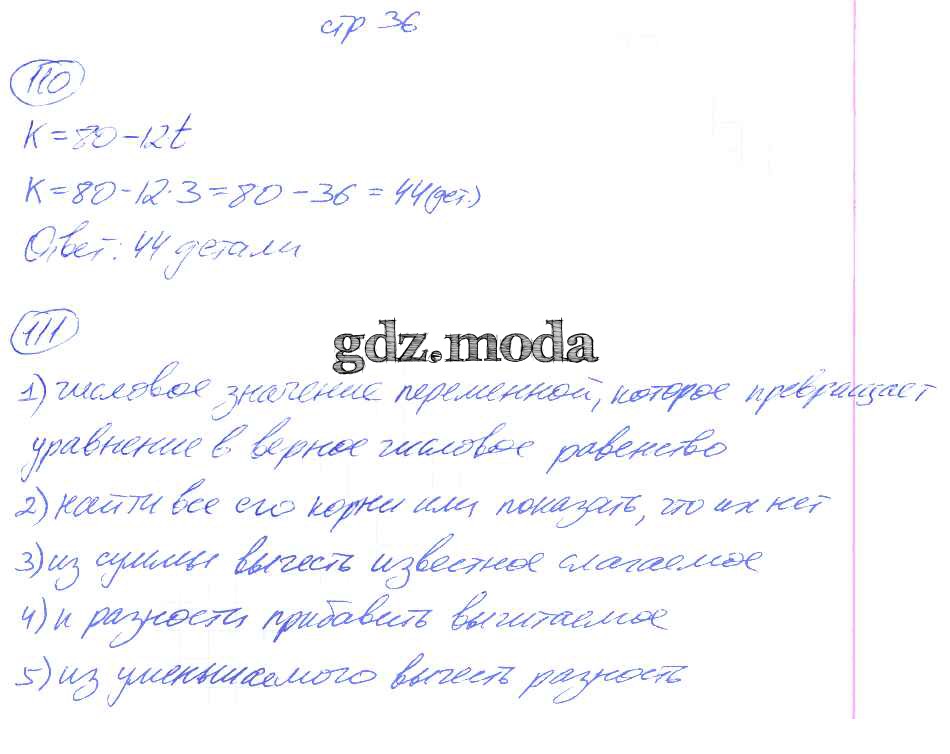 стр 36
110
K = 80 - 12t
K = 80 - 12·3 = 80 - 36 = 44 (дет.)
Ответ: 44 детали
111
gdz.moda
1) числовое значение переменной, которое превращает
уравнение в верное числовое равенство
2) найти все его корни или показать, что их нет
3) из суммы вычесть известное слагаемое
4) к разности прибавить вычитаемое
5) из уменьшаемого вычесть разность